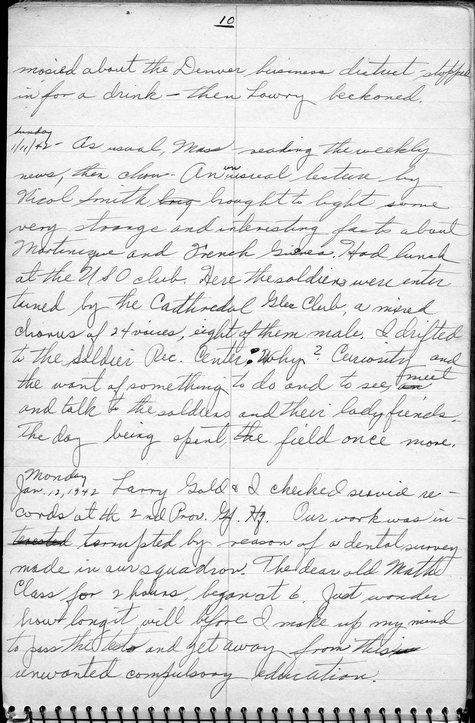 10
mosied about the Denver business district stopped
in for a drink - then Lowry beckoned.
Sunday
1/11/42 - As usual, Mass - reading the weekly
news, then chow. An unusual lecture by
Nicol Smith brog brought to light some
very strange and interesting facts about
Martinique and French Guinea. Had lunch
at the USO club. Here the soldiers were enter
tained by the Cathredal Glee Club, a mixed
chorus of 24 voices, eight of them male. I drifted
to the Soldier Rec. Center. Why? Curiosity and
the want of something to do and to see, meet
and talk to the soldiers and their lady friends.
The day being spent, the field once more.
Monday
Jan. 12, 1942 Larry Gold & I checked service re-
cords at the 2nd Prov. Gp. Hq. Our work was in-
terrupted by reason of a dental survey
made in our squadron. The dear old Math
Class for 2 hours, began at 6. Just wonder
how long it will before I make up my mind
to pass the tests and get away from this
unwanted compulsory education.